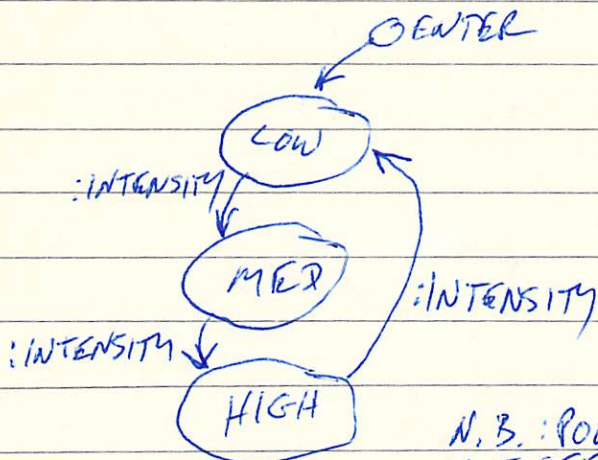 ENTER
LOW
:INTENSITY
MED
:INTENSITY
:INTENSITY
HIGH
N.B.: